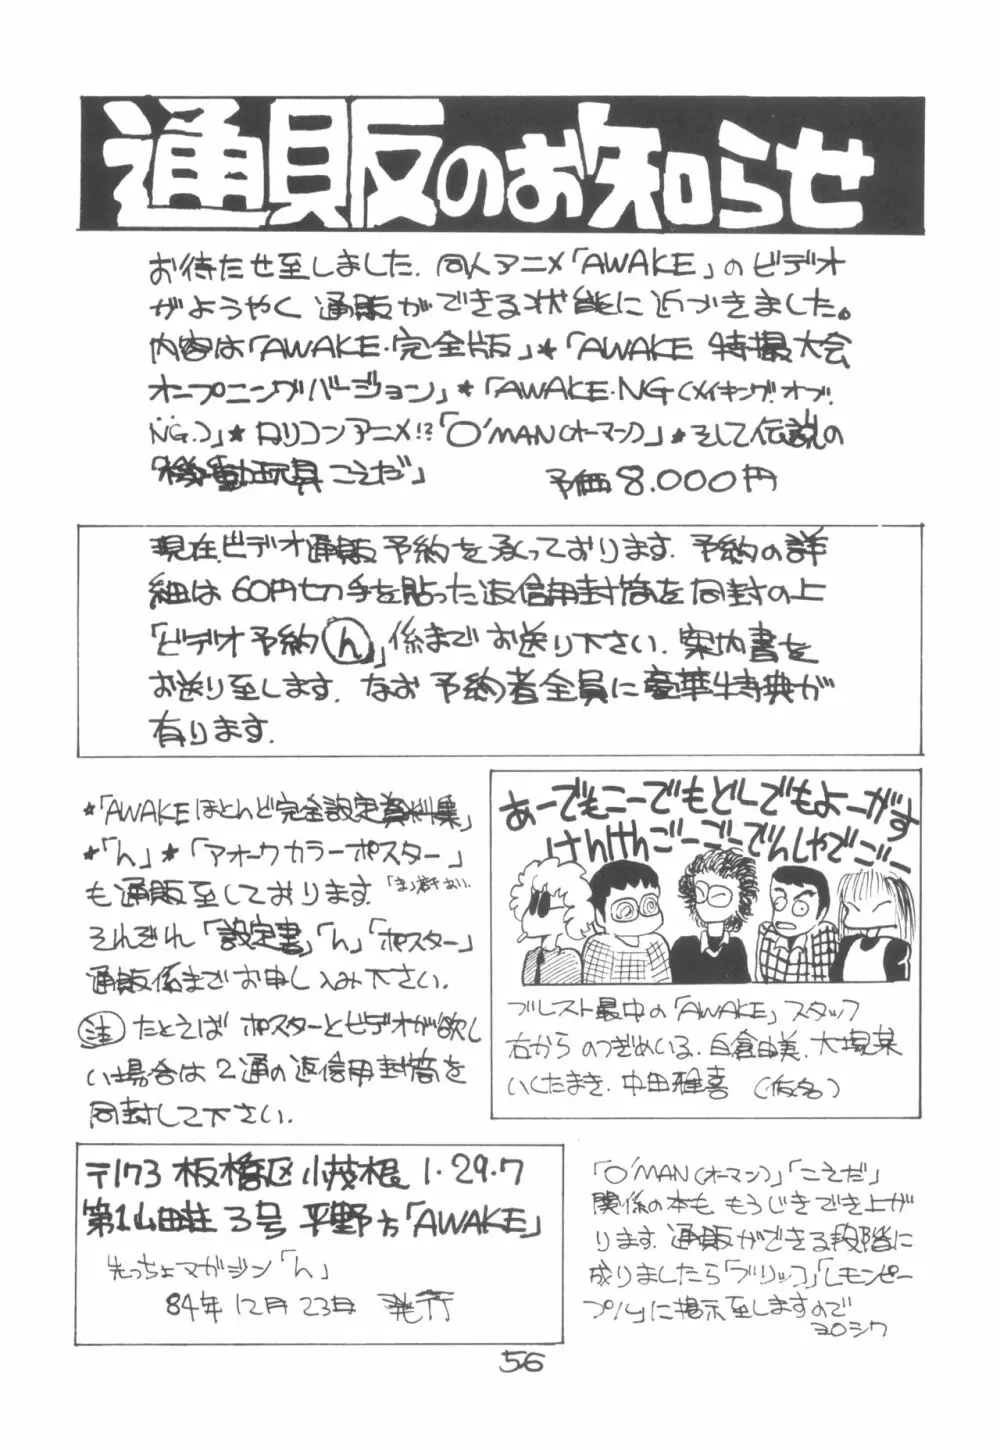 通販のお知らせ
お待たせ至しました. 同人アニメ「AWAKE」のビデオ
がようやく 通販ができる状能に近づきました。
内容は「AWAKE・完全版」★「AWAKE 特撮大会
オープニングバージョン」★「AWAKE・NG(メイキング.オブ.
NG.)」★ロリコンアニメ!?「O'MAN(オーマン)」★そして伝説の
「機動玩具こえだ」 予価8.000円
現在.ビデオ通販予約を承っております. 予約の詳
細は 60円切手を貼った返信用封筒を同封の上
「ビデオ予約ん」係まで お送り下さい. 案内書を
お送り至します. なお 予約者全員に豪華特典が
有ります.
★「AWAKEほとんど完全設定資料集」
★「ん」★「アオークカラーポスター」
も通販至しております.
それぞれ「設定書」「ん」「ポスター」
通販係までお申し込み下さい.
注 たとえば ポスターとビデオが欲し
い場合は 2通の返信用封筒を
同封して下さい.
あーでもこーでもどーでもよーがす
けんけんごーごーでんしゃでごー
ブレスト最中の「AWAKE」スタッフ
右から のつぎめいる. 白倉由美. 大場某
いくたまき. 中田雅喜 (仮名)
〒173 板橋区 小茂根 1・29・7
第1山田荘 3号 平野方「AWAKE」
先っちょマガジン「ん」
84年 12月 23日 発行
「O'MAN(オーマン)」「こえだ」
関係の本も もうじきでき上が
ります. 通販ができる段階に
成りましたら「ブリッコ」「レモンピー
プル」に掲示至しますので
ヨロシク
56